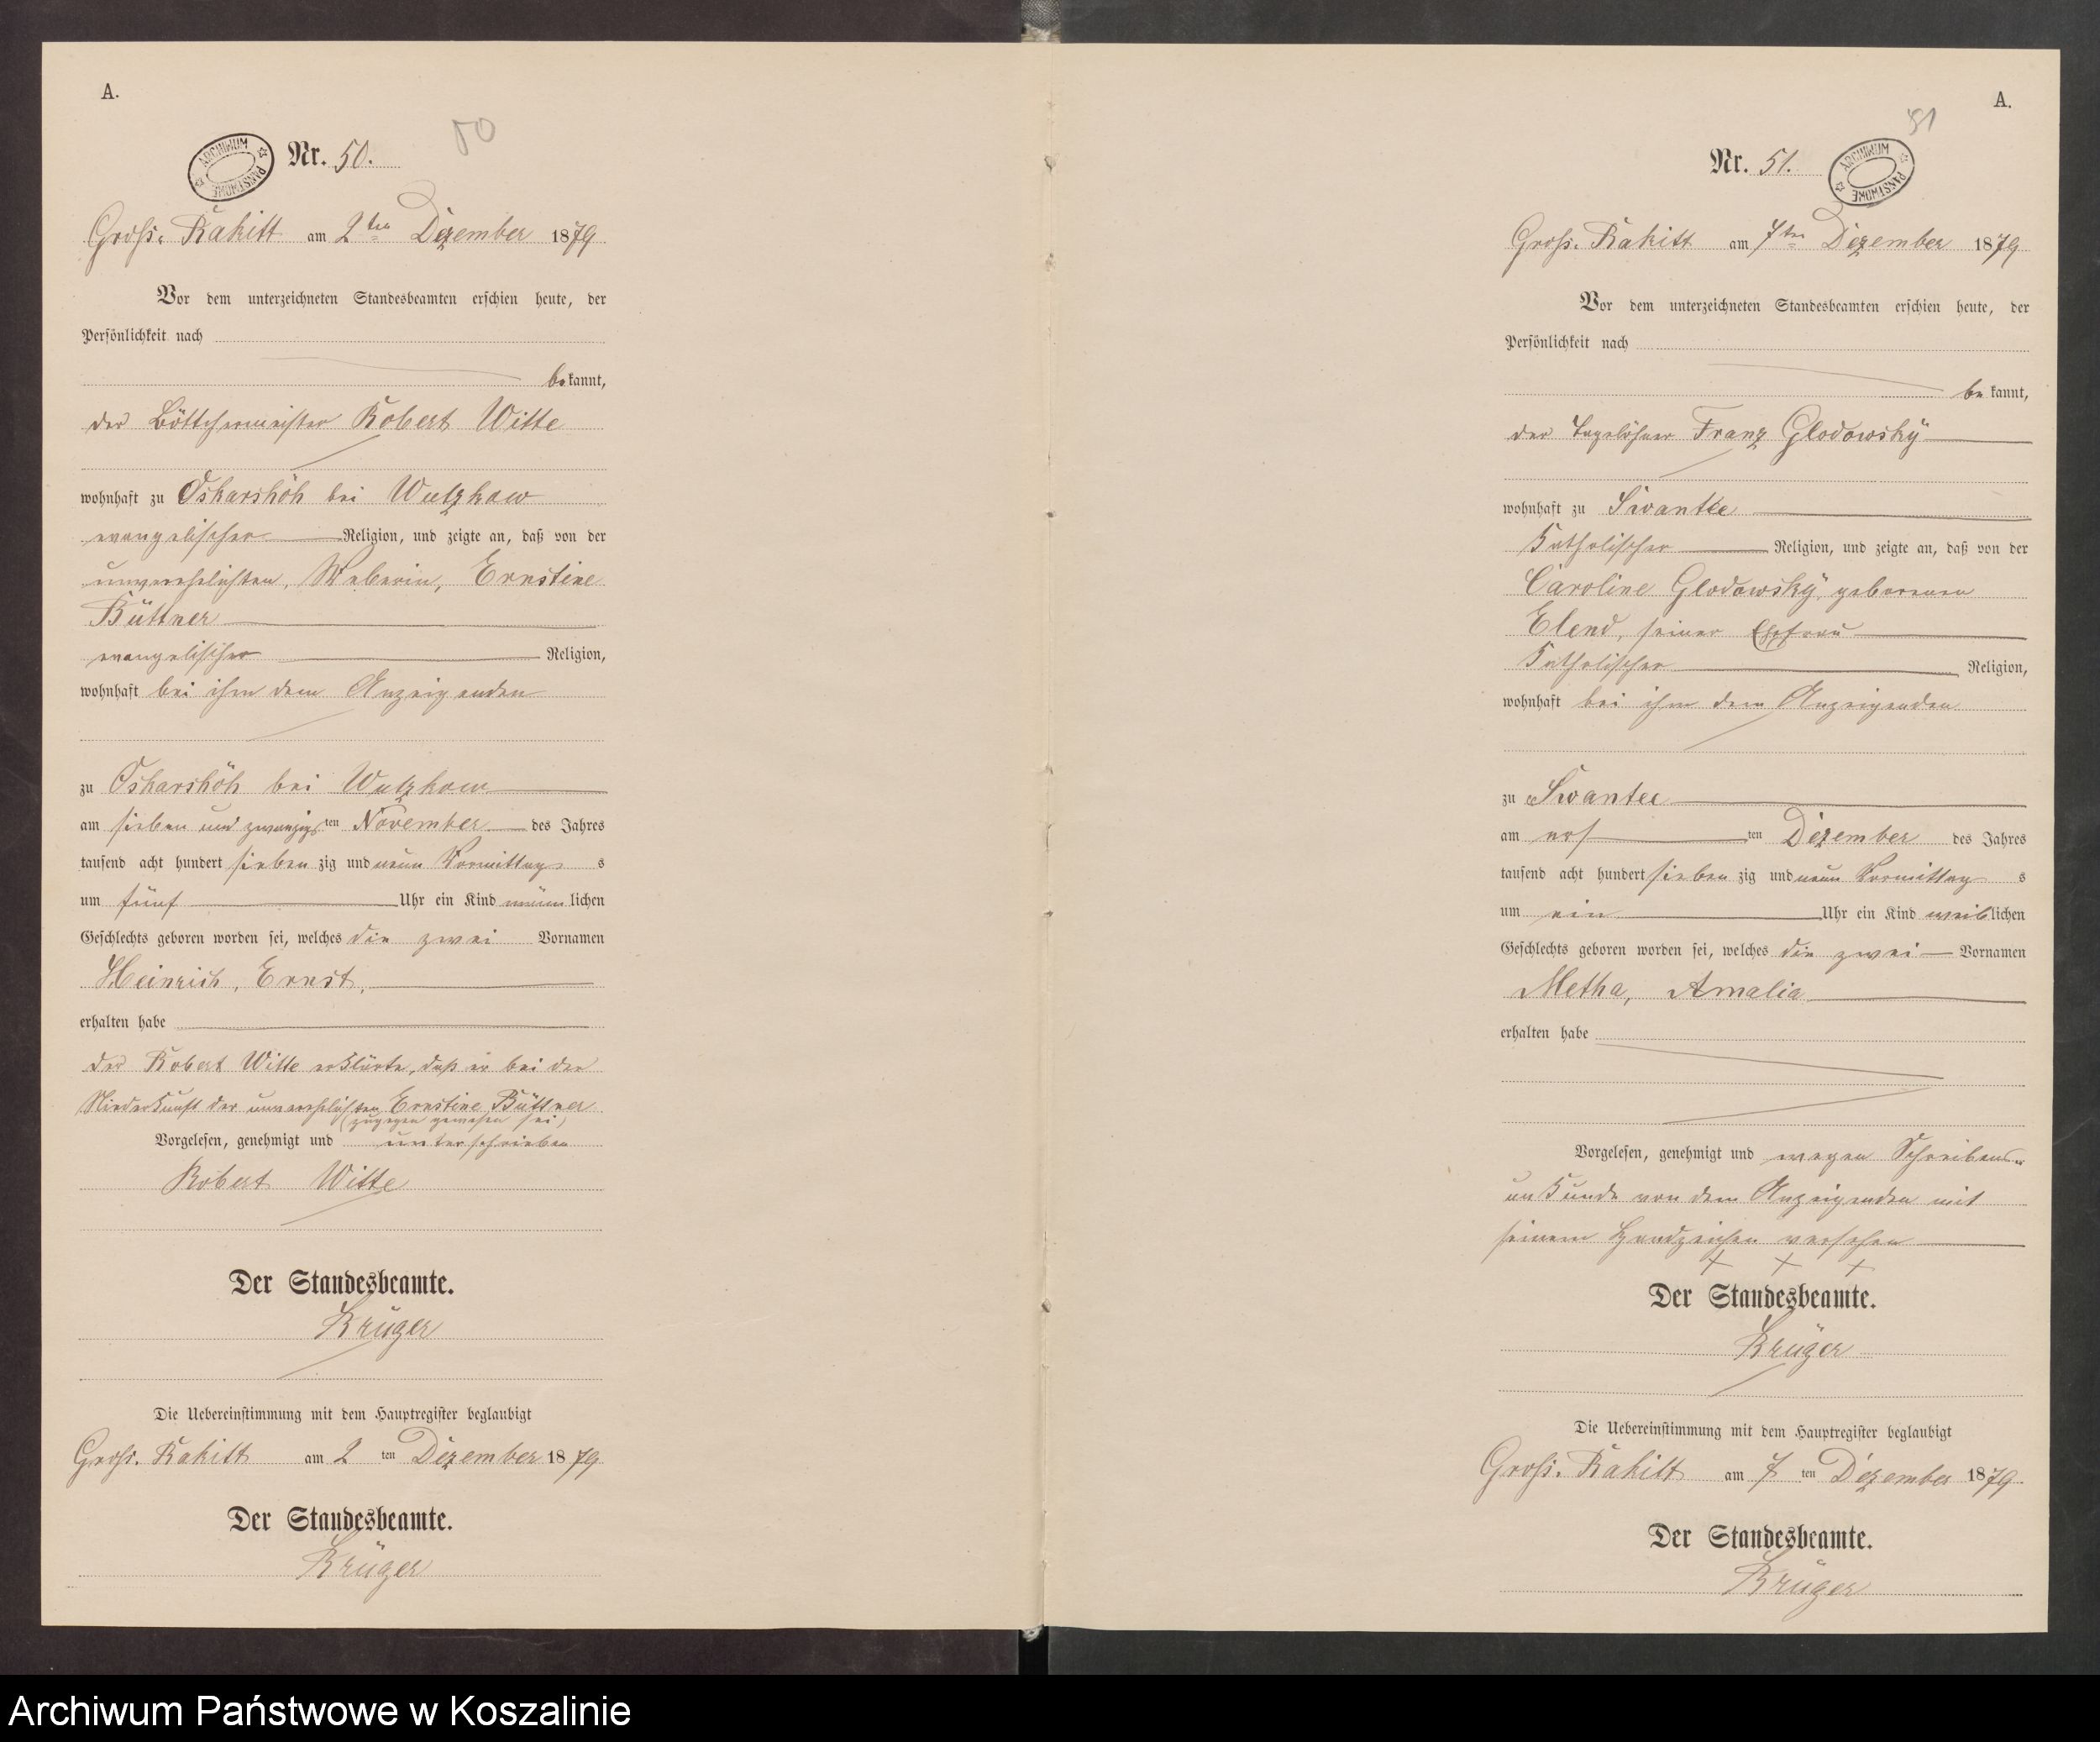 A.
ARCHIWUM PAŃSTWOWE
Nr. 50.
50
Groß. Rakitt am 2ten Dezember 1879
Vor dem unterzeichneten Standesbeamten erschien heute, der
Persönlichkeit nach
bekannt,
der Böttchermeister Robert Witte
wohnhaft zu Oskarshöh bei Wutzkow
evangelischer Religion, und zeigte an, daß von der
unverehelichten, Weberin, Ernstine
Büttner
evangelischer Religion,
wohnhaft bei ihm dem Anzeigenden
zu Oskarshöh bei Wutzkow
am sieben und zwanzigsten November des Jahres
tausend acht hundert siebenzig und neun Vormittags
um fünf Uhr ein Kind männlichen
Geschlechts geboren worden sei, welches die zwei Vornamen
Heinrich, Ernst,
erhalten habe
der Robert Witte erklärte, daß er bei der
Niederkunft der unverehelichten Ernstine Büttner
(zugegen gewesen sei)
Vorgelesen, genehmigt und unterschrieben
Robert Witte
Der Standesbeamte.
Krüger
Die Uebereinstimmung mit dem Hauptregister beglaubigt
Groß. Rakitt am 2ten Dezember 1879
Der Standesbeamte.
Krüger
A.
51
Nr. 51.
ARCHIWUM PAŃSTWOWE
Groß. Rakitt am 7ten Dezember 1879
Vor dem unterzeichneten Standesbeamten erschien heute, der
Persönlichkeit nach
bekannt,
der Tagelöhner Franz Glodowsky
wohnhaft zu Swantee
Katholischer Religion, und zeigte an, daß von der
Caroline Glodowsky geborenen
Elend, seiner Ehefrau
Katholischer Religion,
wohnhaft bei ihm dem Anzeigenden
zu Swantee
am ten Dezember des Jahres
tausend acht hundert siebenzig und neun Vormittags
um ein Uhr ein Kind weiblichen
Geschlechts geboren worden sei, welches die zwei Vornamen
Metha, Amalia
erhalten habe
Vorgelesen, genehmigt und wegen Schreibens-
unkunde von dem Anzeigenden mit
seinem Handzeichen versehen
+ + +
Der Standesbeamte.
Krüger
Die Uebereinstimmung mit dem Hauptregister beglaubigt
Groß. Rakitt am 7ten Dezember 1879
Der Standesbeamte.
Krüger
Archiwum Państwowe w Koszalinie